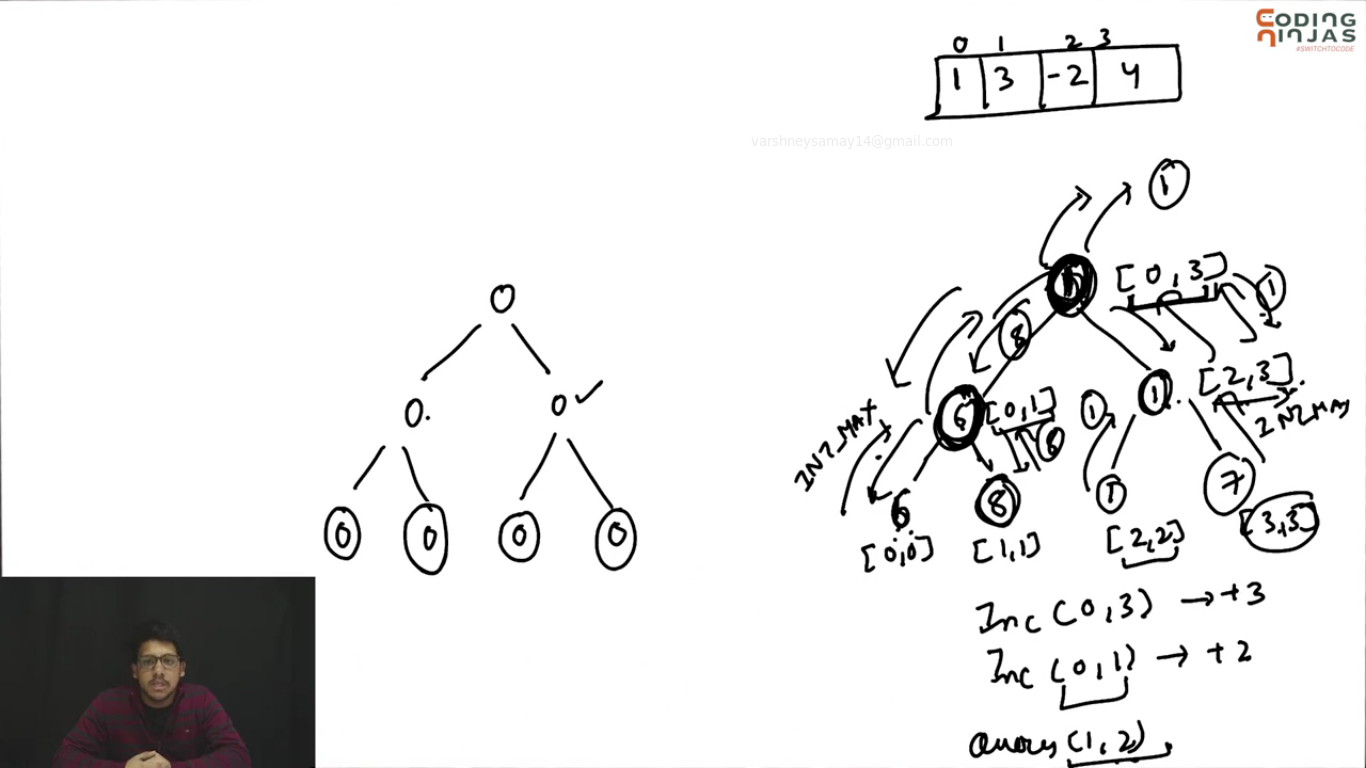 CODING
NINJAS
#SWITCHTOCODE
0 1 2 3
1 3 -2 4
varshneysamay14@gmail.com
1
[0,3] 1
8
0
[2,3]
0. 0 6 [0,1] 1 1
INT_MAX 8 INT_MAX
6 8 1 7
0 0 0 0
[0,0] [1,1] [2,2] [3,3]
Inc (0,3) → +3
Inc (0,1) → +2
(1,2)